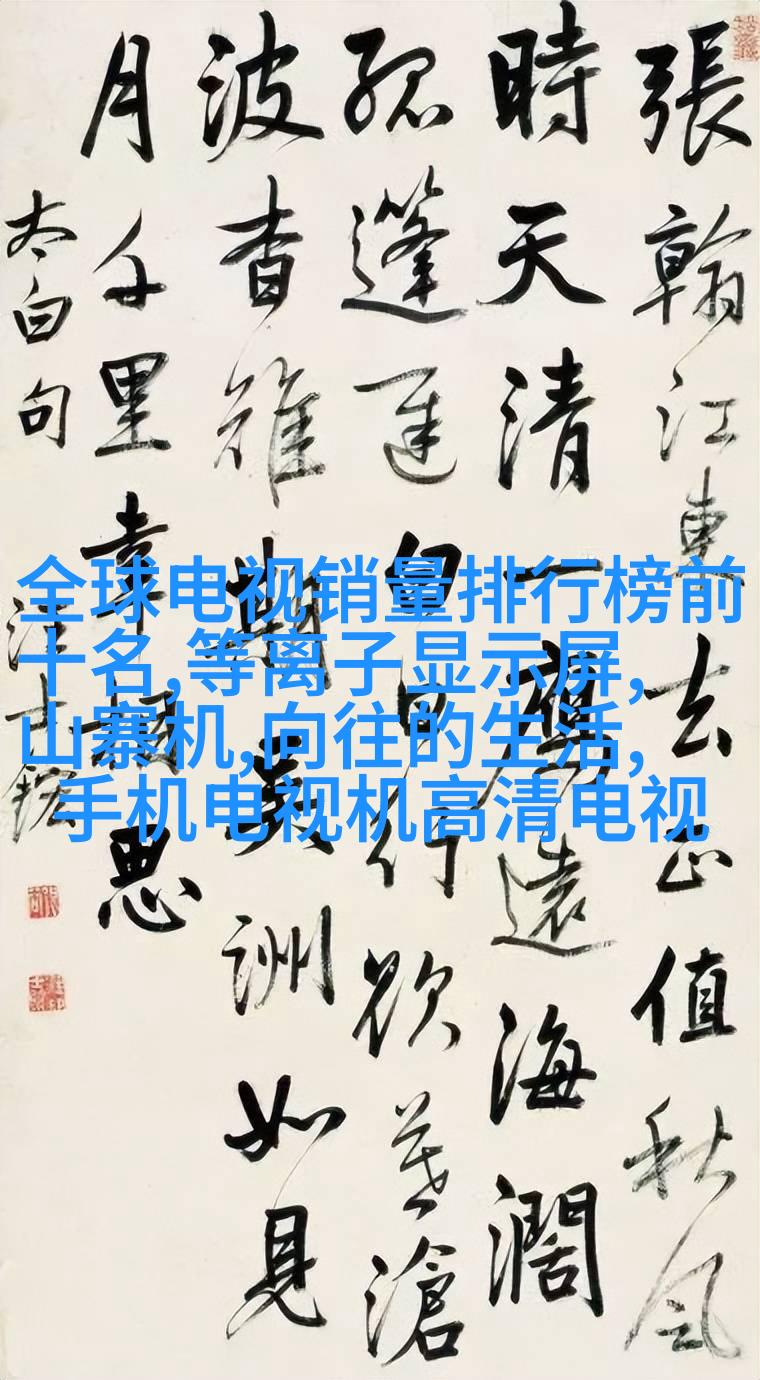 張翰江東去正值秋風
時天清一鴈遠海濶
孤篷遲白日行欲莫滄
波杳難期吳洲如見
月千里幸相思
太白句 汪士鋐
全球电视销量排行榜前
十名,等离子显示屏,
山寨机,向往的生活,
手机电视机高清电视